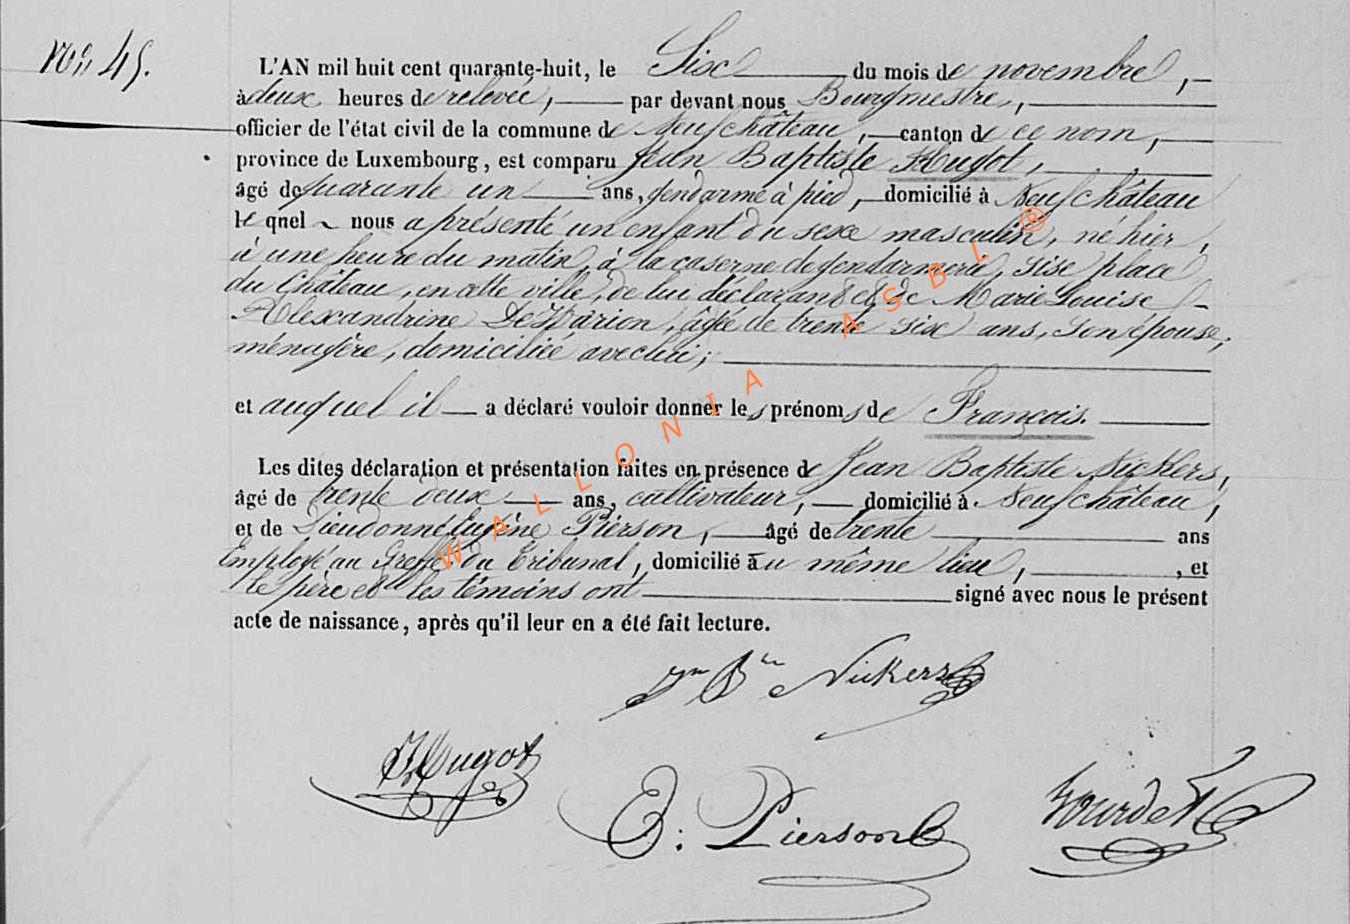 N° 45.
L'AN mil huit cent quarante-huit, le Six du mois de novembre,
à deux heures de relevée, par devant nous Bourgmestre,
officier de l'état civil de la commune de Neufchâteau, canton de ce nom,
province de Luxembourg, est comparu Jean Baptiste Hugot,
âgé de quarante un ans, gendarme à pied, domicilié à Neufchâteau
lequel nous a présenté un enfant du sexe masculin, né hier,
à une heure du matin, à la caserne de gendarmerie, sise place
du Château, en cette ville, de lui déclarant & de Marie Louise
Alexandrine DeWarion, âgée de trente six ans, son épouse,
ménagère, domiciliée avec lui;
et auquel il a déclaré vouloir donner les prénoms de François.
Les dites déclaration et présentation faites en présence de Jean Baptiste Nickers,
âgé de trente deux ans, cultivateur, domicilié à Neufchâteau,
et de Dieudonné Eugène Pierson, âgé de trente ans
Employé au Greffe du Tribunal, domicilié au même lieu, et
le père et les témoins ont signé avec nous le présent
acte de naissance, après qu'il leur en a été fait lecture.
Jn Bte Nickers
JHugot
E: Pierson
Bourdet
WALLONIA ASBL ®